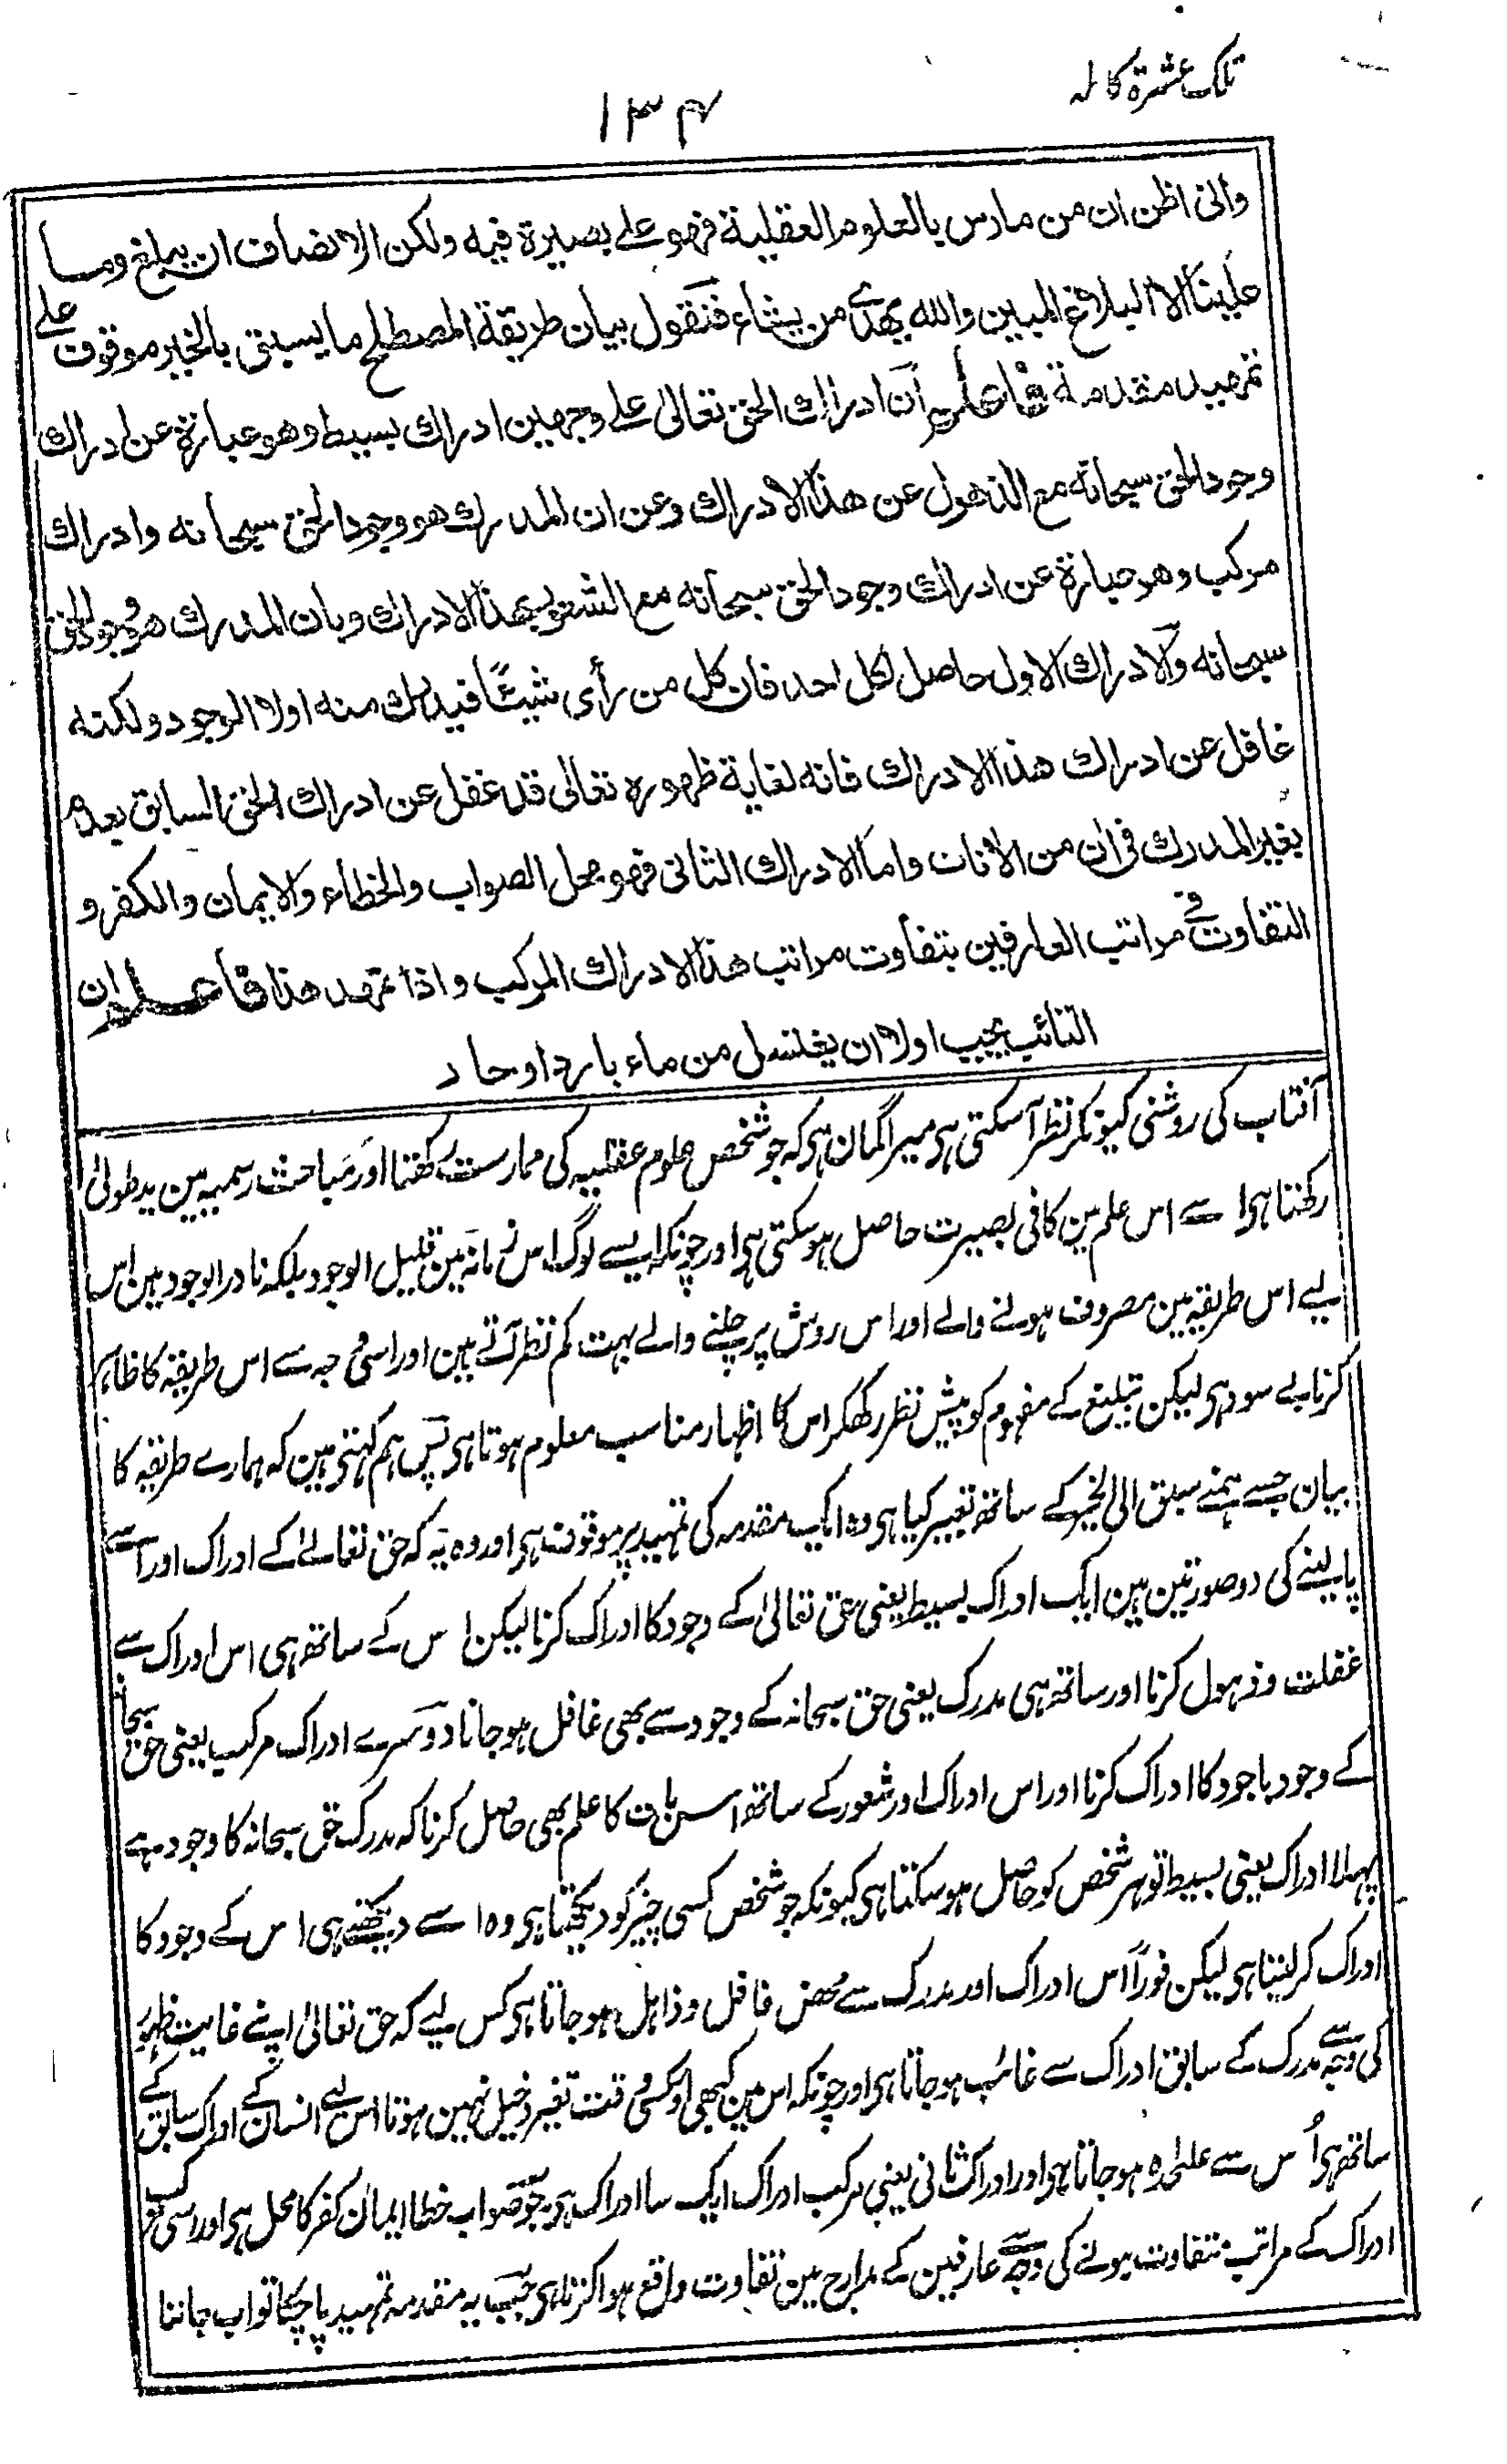 تلک عشرة کاملہ
۱۳۴
وانی اظن ان من مارس بالعلوم العقلیة فهو علی بصیرة فیه ولکن الانصاف ان یبلغ وما
علینا الا البلاغ المبین والله یهدی من یشاء فنقول بیان طریقة المصطلح ما یسبق بالخیر موقوف علی
تمهید مقدمة فاعلم ان ادراك الحق تعالی علی وجهین ادراك بسیط وهو عبارة عن ادراك
وجود الحق سبحانه مع الذهول عن هذا الادراك وعن ان المدرك هو وجود الحق سبحانه وادراك
مرکب وهو عبارة عن ادراك وجود الحق سبحانه مع الشعور بهذا الادراك وبان المدرك هو وجود الحق
سبحانه والادراك الاول حاصل لکل احد فان کل من رأی شیئًا فیدرك منه اولا الوجود ولکنه
غافل عن ادراك هذا الادراك فانه لغایة ظهوره تعالی قد غفل عن ادراك الحق السابق بعدم
یغیر المدرك فی ان من الانات واما الادراك الثانی فهو محل الصواب والخطاء والایمان والکفر و
التفاوت فی مراتب العارفین بتفاوت مراتب هذا الادراك المرکب واذا تمهد هذا فاعلم ان
التائب یجب اولا ان یغتسل من ماء بارد او حار
آفتاب کی روشنی کیونکر نظر آسکتی ہی میرا گمان ہی کہ جو شخص علوم عقلیہ کی ممارست رکھتا اور مباحث رسمیہ مین ید طولیٰ
رکھتا ہی اسے اس علم مین کافی بصیرت حاصل ہو سکتی ہی اور چونکہ ایسے لوگ اس زمانہ مین قلیل الوجود بلکہ نادر الوجود ہین اس
لیے اس طریقہ مین مصروف ہونے والے اور اس روش پر چلنے والے بہت کم نظر آتے ہین اور اسی وجہ سے اس طریقہ کا ظاہر
کرنا بے سود ہی لیکن تبلیغ کے مفہوم کو پیش نظر رکھکر اس کا اظہار مناسب معلوم ہوتا ہی پس ہم کہتی ہین کہ ہمارے طریقہ کا
بیان جسے ہمنے سبق الی الخیر کے ساتھ تعبیر کیا ہی وہ ایک مقدمہ کی تمہید پر موقوف ہی اور وہ یہ کہ حق تعالےٰ کے ادراک اور اسے
پالینے کی دو صورتین ہین ایک ادراک بسیط یعنی حق تعالیٰ کے وجود کا ادراک کرنا لیکن اس کے ساتھ ہی اس ادراک سے
غفلت و ذہول کرنا اور ساتھ ہی مدرک یعنی حق سبحانہ کے وجود سے بھی غافل ہو جانا دوسرے ادراک مرکب یعنی حق سبحانہ
کے وجود باجود کا ادراک کرنا اور اس ادراک اور شعور کے ساتھ اس بات کا علم بھی حاصل کرنا کہ مدرک حق سبحانہ کا وجود ہے
پہلا ادراک یعنی بسیط تو ہر شخص کو حاصل ہو سکتا ہی کیونکہ جو شخص کسی چیز کو دیکھتا ہی وہ اسے دیکھتے ہی اس کے وجود کا
ادراک کر لیتا ہی لیکن فوراً اس ادراک اور مدرک سے محض غافل و ذاہل ہو جاتا ہی کس لیے کہ حق تعالیٰ اپنے غایت ظہور
کی وجہ سے مدرک کے سابق ادراک سے غائب ہو جاتا ہی اور چونکہ اس مین کبھی اور کسی وقت تغیر دخیل نہین ہوتا اس لیے انسان کے ادراک سابق کے
ساتھ ہی اُس سے علیٰحدہ ہو جاتا ہی اور ادراک ثانی یعنی مرکب ادراک ایک سا ادراک ہی جو صواب خطا ایمان کفر کا محل ہی اور اسی مرکب
ادراک کے مراتب متفاوت ہونے کی وجہ سے عارفین کے مدارج مین تفاوت واقع ہوا کرتا ہی جب یہ مقدمہ تمہید پاچکا تو اب جاننا